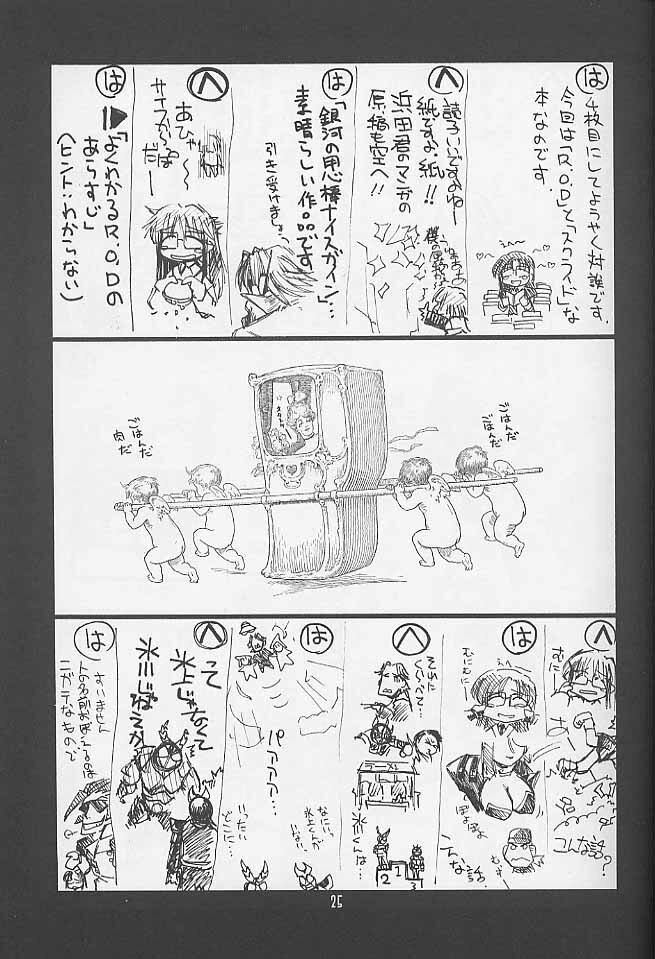 は
4枚目にしてようやく対談です。
今回は「R.O.D」と「スクライド」な
本なのです。
へ
読子いいですよねー
紙ですよ、紙!!
浜田君のマンガの
原稿も空へ!!
は
「銀河の用心棒ナイスガイン」…
素晴らしい作品です
引き受けましょう
へ
あひゃ〜
は
「よくわかるR.O.Dの
あらすじ」
(ヒント:わからない)
ごはんだ
ごはんだ
ごはんだ
肉だ
へ
むに
こんな話?
は
むにむに
ぽよぽよ
こんな話
へ
それに
くらべて…
氷川くんは…
2
1
3
は
パァァァ…
なにい、
氷上くんが
いない
いったい
どこに…
へ
って
氷上じゃなくて
氷川じゃねえか
は
すいません
人の名前お覚えるのは
ニガテなもので
25